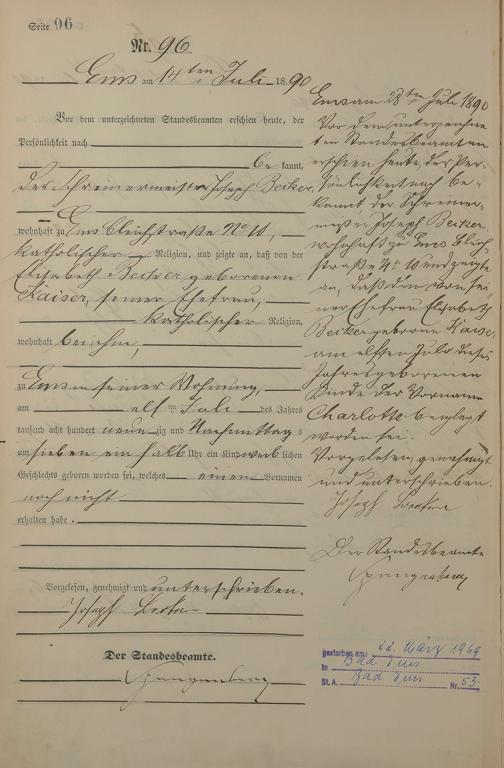 Seite 96
Nr. 96
Ems am 14ten Juli 1890
Vor dem unterzeichneten Standesbeamten erschien heute, der
Persönlichkeit nach
be kannt,
der Schreinermeister Joseph Becker,
wohnhaft zu Ems Bleichstraße No 10,
katholischer Religion, und zeigte an, daß von der
Elisabeth Becker geborenen
Kaiser, seiner Ehefrau,
katholischer Religion,
wohnhaft bei ihm,
zu Ems in seiner Wohnung,
am elf ten Juli des Jahres
tausend acht hundert neun zig und Nachmittags
um sieben ein halb Uhr ein Kind weib lichen
Geschlechts geboren worden sei, welches einen Vornamen
noch nicht
erhalten habe.
Vorgelesen, genehmigt und unterschrieben.
Joseph Becker
Der Standesbeamte.
Ems am 28ten Juli 1890
Vor dem unterzeichne
ten Standesbeamten
erschien heute, der Per
sönlichkeit nach be
kannt der Schreiner
meister Joseph Becker
wohnhaft zu Ems Bleich
straße No 10 und zeigte
an, daß dem von sei
ner Ehefrau Elisabeth
Becker geborene Kaiser
am elften Juli dieses
Jahres geborenen
Kinde der Vorname
Charlotte beigelegt
worden sei.
Vorgelesen, genehmigt
und unterschrieben.
Joseph Becker
Der Standesbeamte
gestorben am: 22. März 1969
in Bad Ems
St.A. Bad Ems Nr. 53